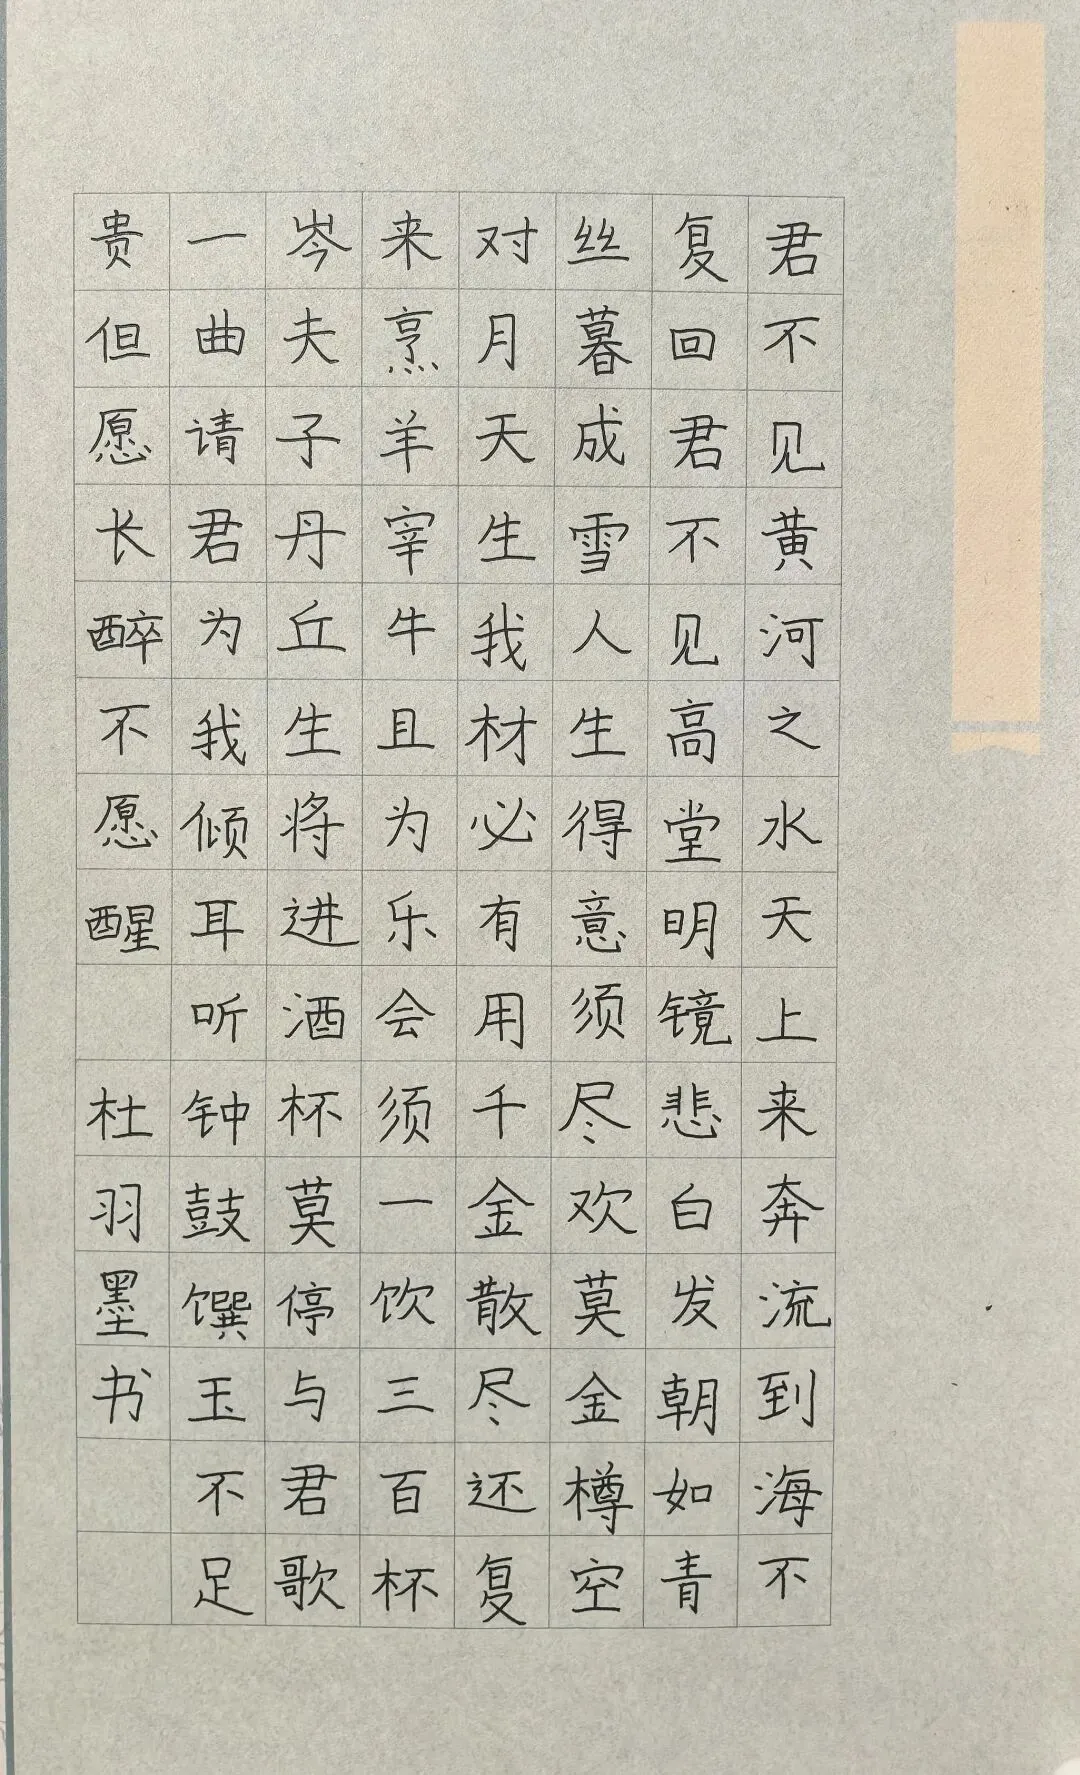 君不见黄河之水天上来奔流到海不
复回君不见高堂明镜悲白发朝如青
丝暮成雪人生得意须尽欢莫金樽空
对月天生我材必有用千金散尽还复
来烹羊宰牛且为乐会须一饮三百杯
岑夫子丹丘生将进酒杯莫停与君歌
一曲请君为我倾耳听钟鼓馔玉不足
贵但愿长醉不愿醒 杜羽墨书